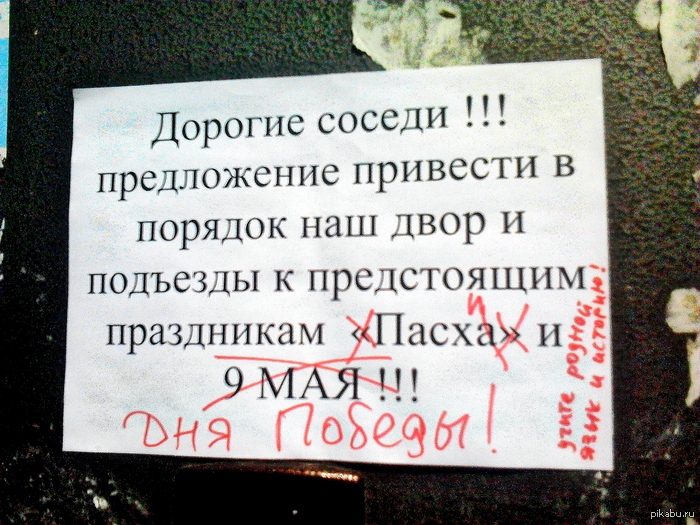 Дорогие соседи !!!
предложение привести в
порядок наш двор и
подъезды к предстоящим
праздникам «Пасха» и
и
9 МАЯ !!!
Дня Победы!
учите родной
язык и историю!
pikabu.ru